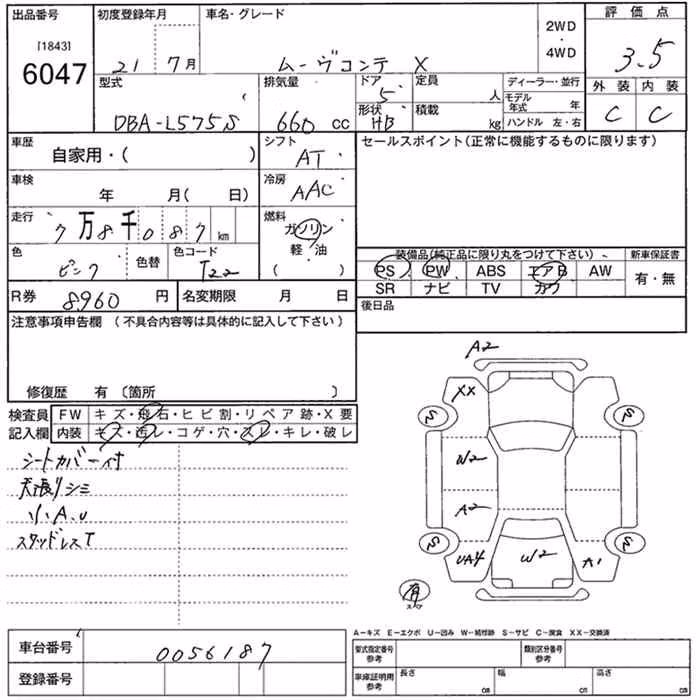 出品番号 初度登録年月 車名・グレード 2WD ・ 4WD 評価点
[1843]
6047
21 7月 ムーヴコンテ X 3.5
型式 排気量 ドア 定員 ディーラー・並行 外装 内装
5 人 モデル年式 年
DBA-L575S 660 cc 形状 HB 積載 kg ハンドル 左・右 C C
車歴 自家用・( ) シフト AT セールスポイント(正常に機能するものに限ります)
車検 年 月( 日) 冷房 AAC
走行 7万8千087 km 燃料 ガソリン 軽・油 ( )
色 ピンク 色替 色コード T22
装備品(純正品に限り丸をつけて下さい) 新車保証書
PS PW ABS エアB AW 有・無
SR ナビ TV カワ
R券 8960 円 名変期限 月 日 後日品
注意事項申告欄 (不具合内容等は具体的に記入して下さい)
修復歴 有 〔箇所 〕
検査員記入欄 FW キズ・飛石・ヒビ割・リペア跡・X要
内装 キズ・汚レ・コゲ・穴・スレ・キレ・破レ
シートカバー付
天張りシミ
小A.U
スタッドレスT
A2
XX
S S
W2
A2
S S
UA4 W2 A1
有
スペア
A−キズ E−エクボ U−凹み W−補修跡 S−サビ C−腐食 XX−交換済
車台番号 0056187
登録番号
型式指定番号 参考 類別区分番号 参考
車庫証明用 参考 長さ cm 幅 cm 高さ cm